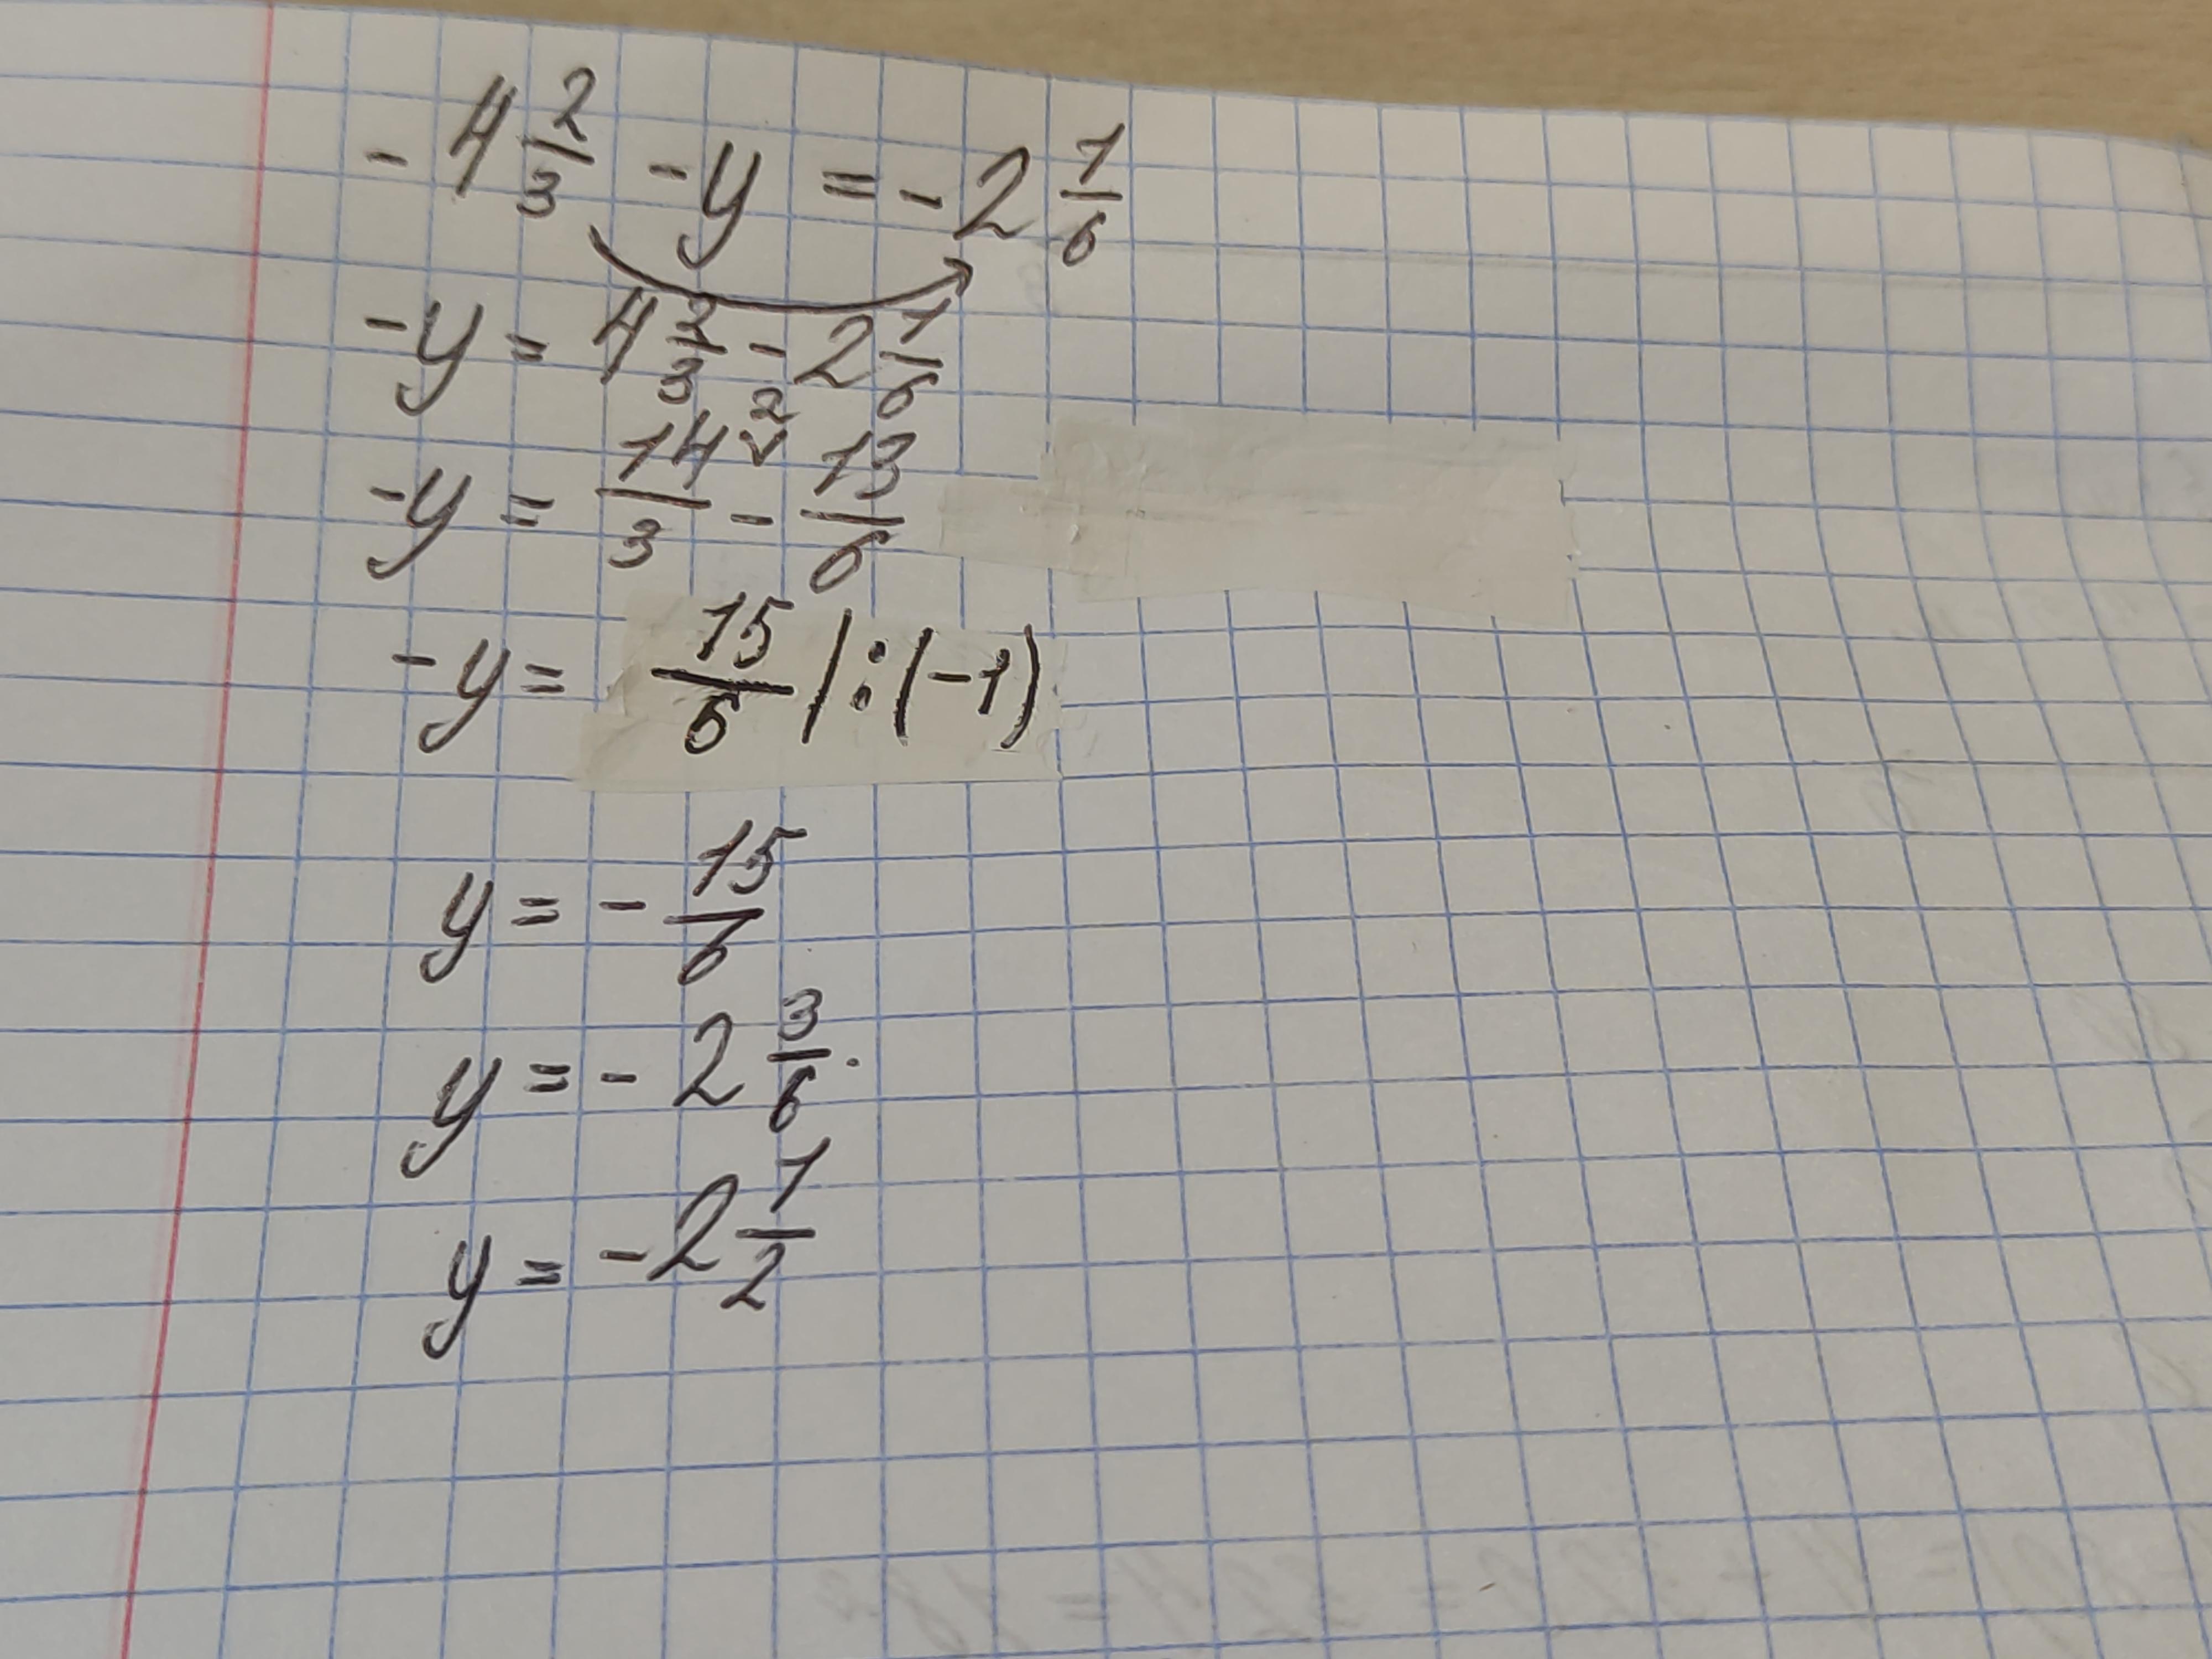 - 4 2/3 - y = - 2 1/6
-y = 4 2/3 - 2 1/6
-y = 14/3 ² - 13/6
-y = 15/6 |:(-1)
y = - 15/6
y = - 2 3/6.
y = - 2 1/2